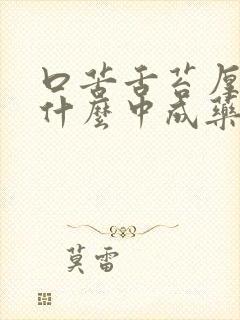 口苦舌苔厚
什麼中成藥
莫雷